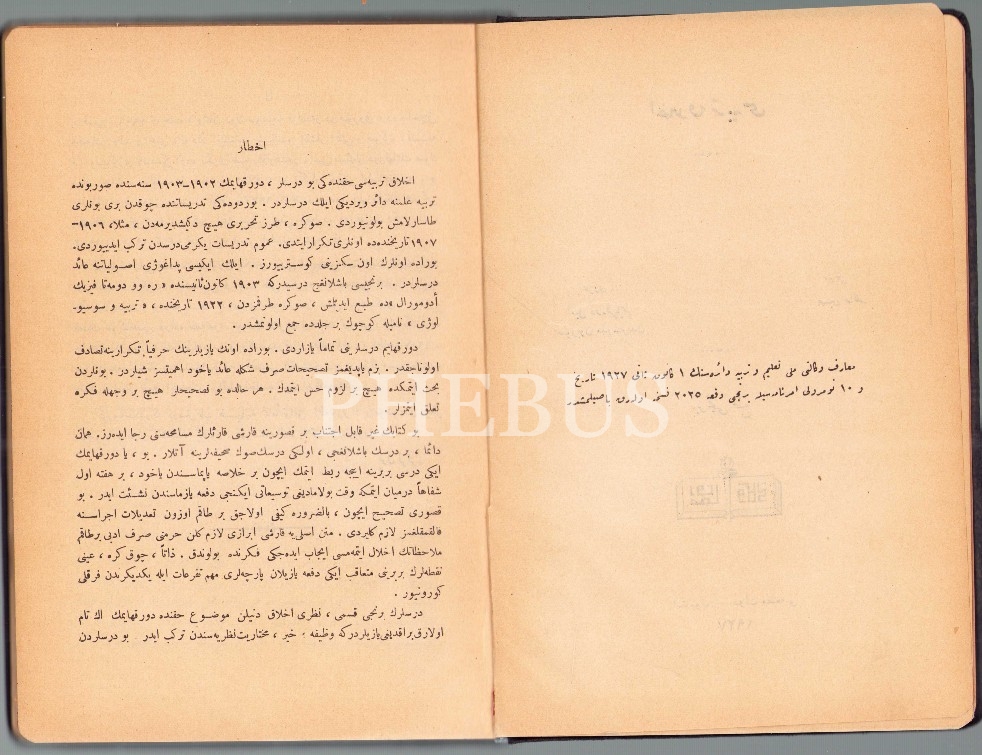 معارف وکالتی ملی تعلیم و تربیه دائره‌سنك ١ کانون ثانی ١٩٢٧ تاریخ
و ١٠ نومرولی امرنامه‌سیله برنجی دفعه ٢٠٢٥ نسخه اولارق باصیلمشدر
اخطار
اخلاق تربیه‌سی حقنده‌کی بو درسلر ، دورقهایمك ١٩٠٢–١٩٠٣ سنه‌سنده صوربونده
تربیه علمنه دائر ویردیکی ایلك درسلردر . بوردوده‌کی تدریساتنده چوقدن بری بونلری
طاسارلامش بولونیوردی . صوکره ، طرز تحریری هیچ دکیشدیرمه‌دن ، مثلا، ١٩٠٦–
١٩٠٧ تاریخنده‌ده اونلری تکرار ایتدی. عموم تدریسات یکرمی درسدن ترکب ایدییوردی.
بوراده اونلرك اون سکزینی کوستریییورز . ایلك ایکیسی پداغوژی اصولیاتنه عائد
درسلردر . برنجیسی باشلانغج درسیدرکه ١٩٠٣ کانون‌ثانیسنده « ره وو دومه‌تا فیزیك
أدومورال »ده طبع ایدیلمش ، صوکره طرفمزدن ، ١٩٢٢ تاریخنده ، « تربیه و سوسیو-
لوژی » نامیله کوچوك بر جلدده جمع اولونمشدر .
دورقهایم درسلرینی تماماً یازاردی . بوراده اونك یازیلرینك حرفیاً تکرارینه تصادف
اولوناجقدر . بزم یاپدیغمز تصحیحات صرف شکله عائد یاخود اهمیتسز شیلردر . بونلردن
بحث ایتمکده هیچ بر لزوم حس ایتمدك . هر حالده بو تصحیحلر هیچ بر وجهله فکره
تعلق ایتمزلر .
بو کتابك غیر قابل اجتناب بر قصورینه قارشی قارئلرك مسامحه‌سنی رجا ایده‌رز. همان
دائما ، بر درسك باشلانغجی ، اولکی درسك صوك صحیفه‌لرینه آتلار . بو ، یا دورقهایمك
ایکی درسی بربرینه اییجه ربط ایتمك ایچون بر خلاصه یاپماسندن یاخود ، بر هفته اول
شفاهاً درمیان ایتمکه وقت بولامادیغی توسیعاتی ایکنجی دفعه یازماسندن نشئت ایدر . بو
قصوری تصحیح ایچون ، بالضروره کیفی اولاجق بر طاقم اوزون تعدیلات اجراسنه
قالقمقلغمز لازم کلیردی . متن اصلی‌یه قارشی ابرازی لازم کلن حرمتی صرف ادبی برطاقم
ملاحظاتك اخلال ایتمه‌مسی ایجاب ایده‌جکی فکرنده بولوندق . ذاتاً ، چوق کره ، عینی
نقطه‌لرك بربرینی متعاقب ایکی دفعه یازیلان پارچه‌لری مهم تفرعات ایله یکدیکرندن فرقلی
کورونیور .
درسلرك برنجی قسمی ، نظری اخلاق دنیلن موضوع حقنده دورقهایمك اك تام
اولارق براقدیغی یازیلردرکه وظیفه ، خیر ، مختاریت نظریه‌سندن ترکب ایدر بو درسلردن
PHEBUS